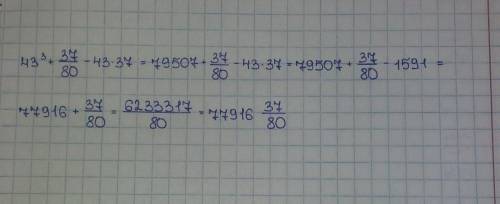 43³ + 37/80 - 43·37 = 79507 + 37/80 - 43·37 = 79507 + 37/80 - 1591 =
77916 + 37/80 = 6233317/80 = 77916 37/80